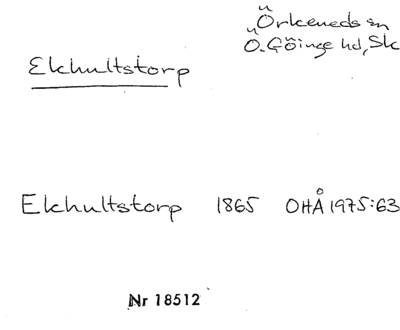 Örkeneds sn
Ö. Göinge hd, Sk
Ekhultstorp
Ekhultstorp 1865 OHÅ 1975:63
Nr 18512